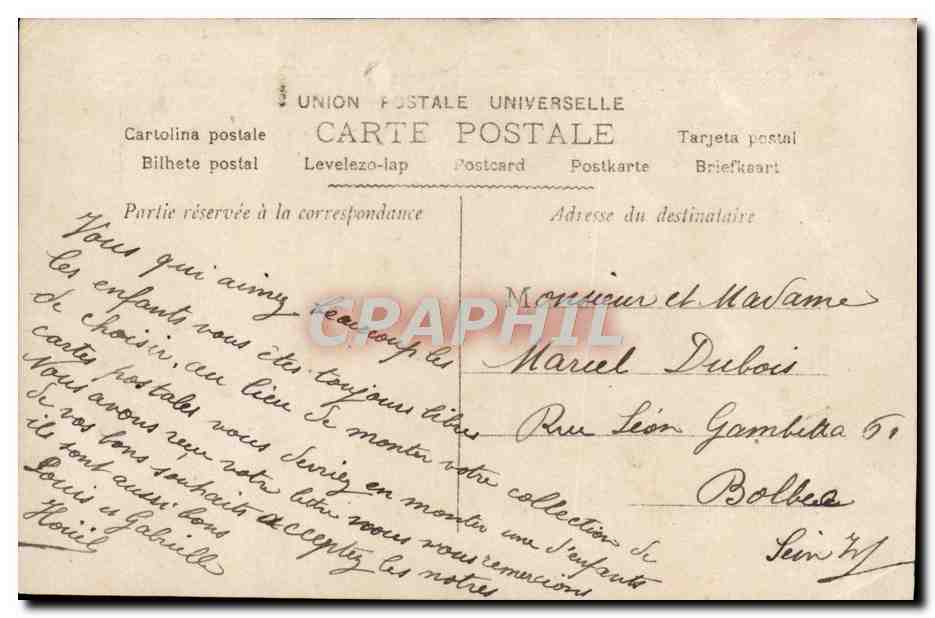 UNION POSTALE UNIVERSELLE
CARTE POSTALE
Cartolina postale
Tarjeta postal
Bilhete postal Levelezo-lap Postcard Postkarte Briefkaart
Partie réservée à la correspondance
Adresse du destinataire
Vous qui aimez beaucoup les
les enfants vous êtes toujours libres
de choisir, au lieu de monter votre collection de
cartes postales vous devriez en monter une d'enfants
Nous avons reçu votre lettre nous vous remercions
de vos bons souhaits acceptez les notres
ils sont aussi bons
Louis et Gabrielle
Houël
Monsieur et Madame
Marcel Dubois
Rue Léon Gambetta
Bolbec
Sein
CPAPHIL